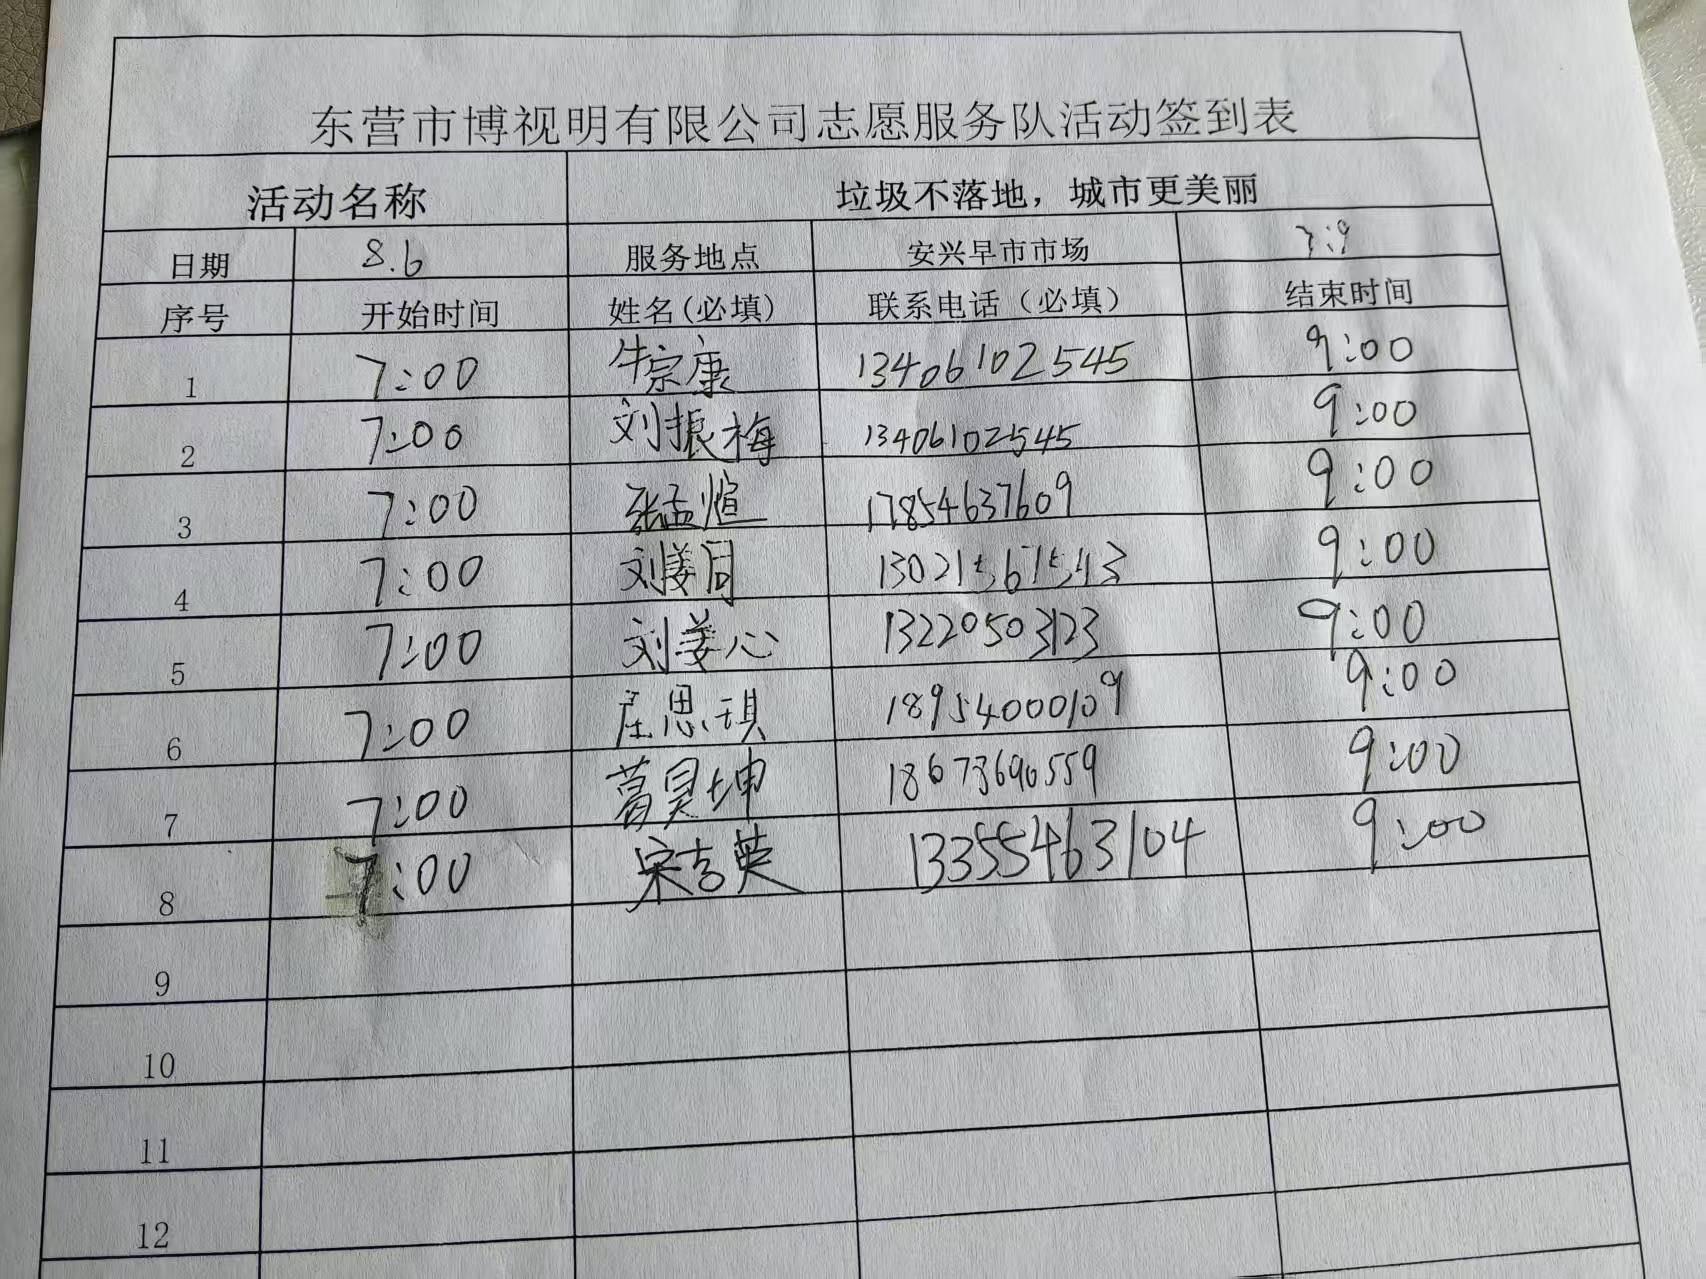 东营市博视明有限公司志愿服务队活动签到表
活动名称 垃圾不落地，城市更美丽
日期 8.6 服务地点 安兴早市市场 7:9
序号 开始时间 姓名(必填) 联系电话（必填） 结束时间
1 7:00 牛宗康 13406102545 9:00
2 7:00 刘振梅 13406102545 9:00
3 7:00 张孟煊 17854637609 9:00
4 7:00 刘姜同 9:00
5 7:00 刘姜心 13220503123 9:00
6 7:00 思琪 18954000109 9:00
7 7:00 葛昊坤 18673690559 9:00
8 7:00 宋吉英 13355463104 9:00
9
10
11
12